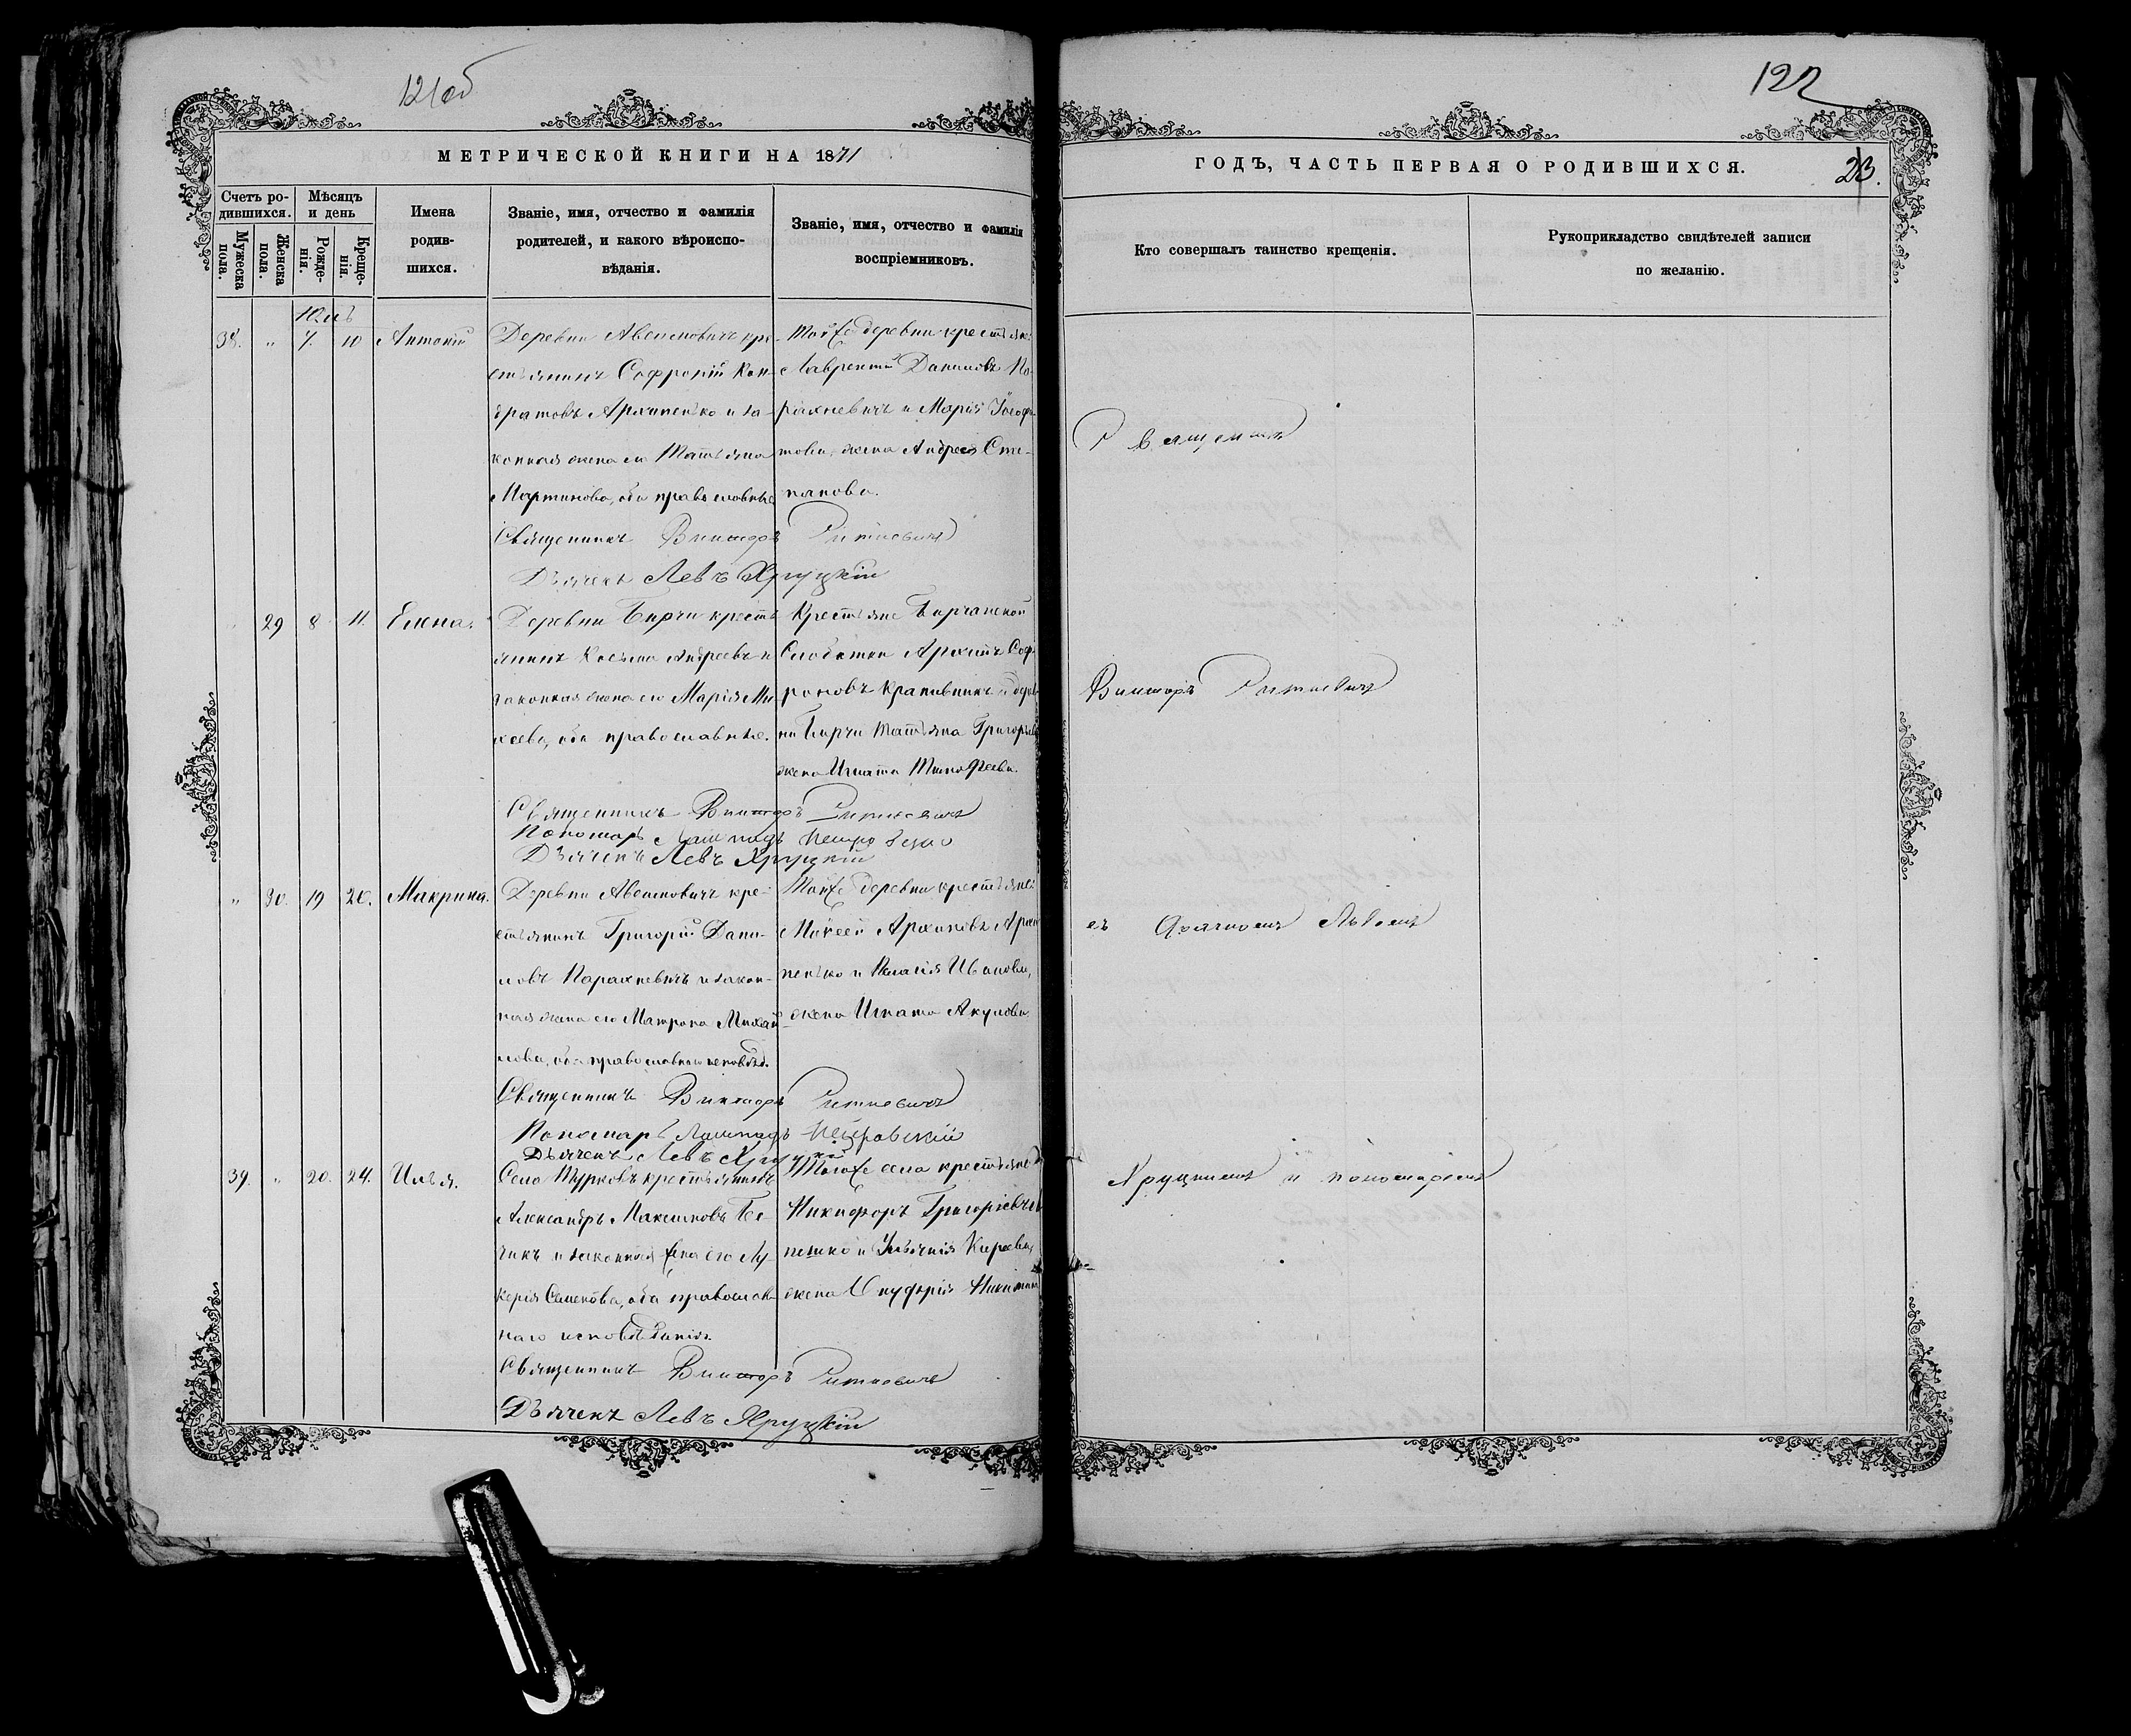 121об
МЕТРИЧЕСКОЙ КНИГИ НА 1871
Счетъ ро-
дившихся.
Мѣсяцъ
и день
Имена
родив-
шихся.
Званіе, имя, отчество и фамилія
родителей, и какого вѣроиспо-
вѣданія.
Званіе, имя, отчество и фамилія
воспріемниковъ.
Мужеска
пола.
Женска
пола.
Рожде-
нія.
Креще-
нія.
Юль
38. " 7. 10 Антоній
Деревни Авсимовичъ кре-
стьянинъ Софроній Кон-
дратовъ Архипенко и за-
конная жена его Татьяна
Мартинова, оба православные
Тойже деревни крестьяне
Лаврентій Даниловъ По-
рахневичъ и Марія Іосифо-
това, жена Андрея Сте-
панова.
Священникъ Викторъ Ситкевичъ
Дьячекъ Левъ Хруцкій
29 8 11. Елена.
Деревни Бирчи кресть
янинъ Косьма Андреевъ и
законная жена его Марія Ми-
хеева, оба православные.
Крестьяне Бирчанской
Слободки Архипъ Соф-
роновъ Крапивникъ и дерев-
ни Бирчи Татьяна Григорьева
жена Игната Тимофеева.
Священникъ Викторъ Ситкевичъ
Пономарь
Дьячекъ Левъ Хруцкій
" 30. 19 20. Макрина.
Деревни Авсимовичъ кре-
стьянинъ Григорій Дани-
ловъ Парахневичъ и закон-
ная жена его Матрона Михай-
лова, оба православнаго исповѣд.
Тойже деревни крестьяне
Моисей Архиповъ Архи
пенько и Пелагія Иванова,
жена Игната Акулова.
Священникъ Викторъ Ситкевичъ
Пономарь Петровскій
Дьячекъ Левъ Хруцкій
39. " 20. 24. Илья.
Села Турковъ крестьянинъ
Александръ Максимовъ
чикъ и законная жена его Лу-
керія Семенова, оба православ-
наго исповѣданія.
Тогоже села крестьяне
Никифоръ Григоріевъ
пешко и Ульянія Кирѣева,
жена Онуфрія Никитина
Священникъ Викторъ Ситкевичъ
Дьячекъ Левъ Хруцкій
122
ГОДЪ, ЧАСТЬ ПЕРВАЯ О РОДИВШИХСЯ.
23.
Кто совершалъ таинство крещенія.
Рукоприкладство свидѣтелей записи
по желанію.
Священникъ
Викторъ Ситкевичъ
съ дьячкомъ Львомъ
Хруцкимъ и пономаремъ